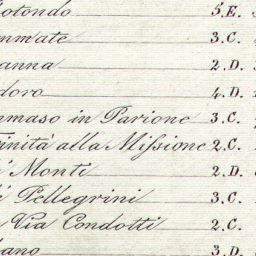 otondo 5.E.
mmate 3.C.
anna 2.D.
doro 4.D.
maso in Parione 3.C.
inità alla Missione 2.C.
i Monti 2.D.
i Pellegrini 3.C.
Via Condotti 2.C.
ano 3.D.